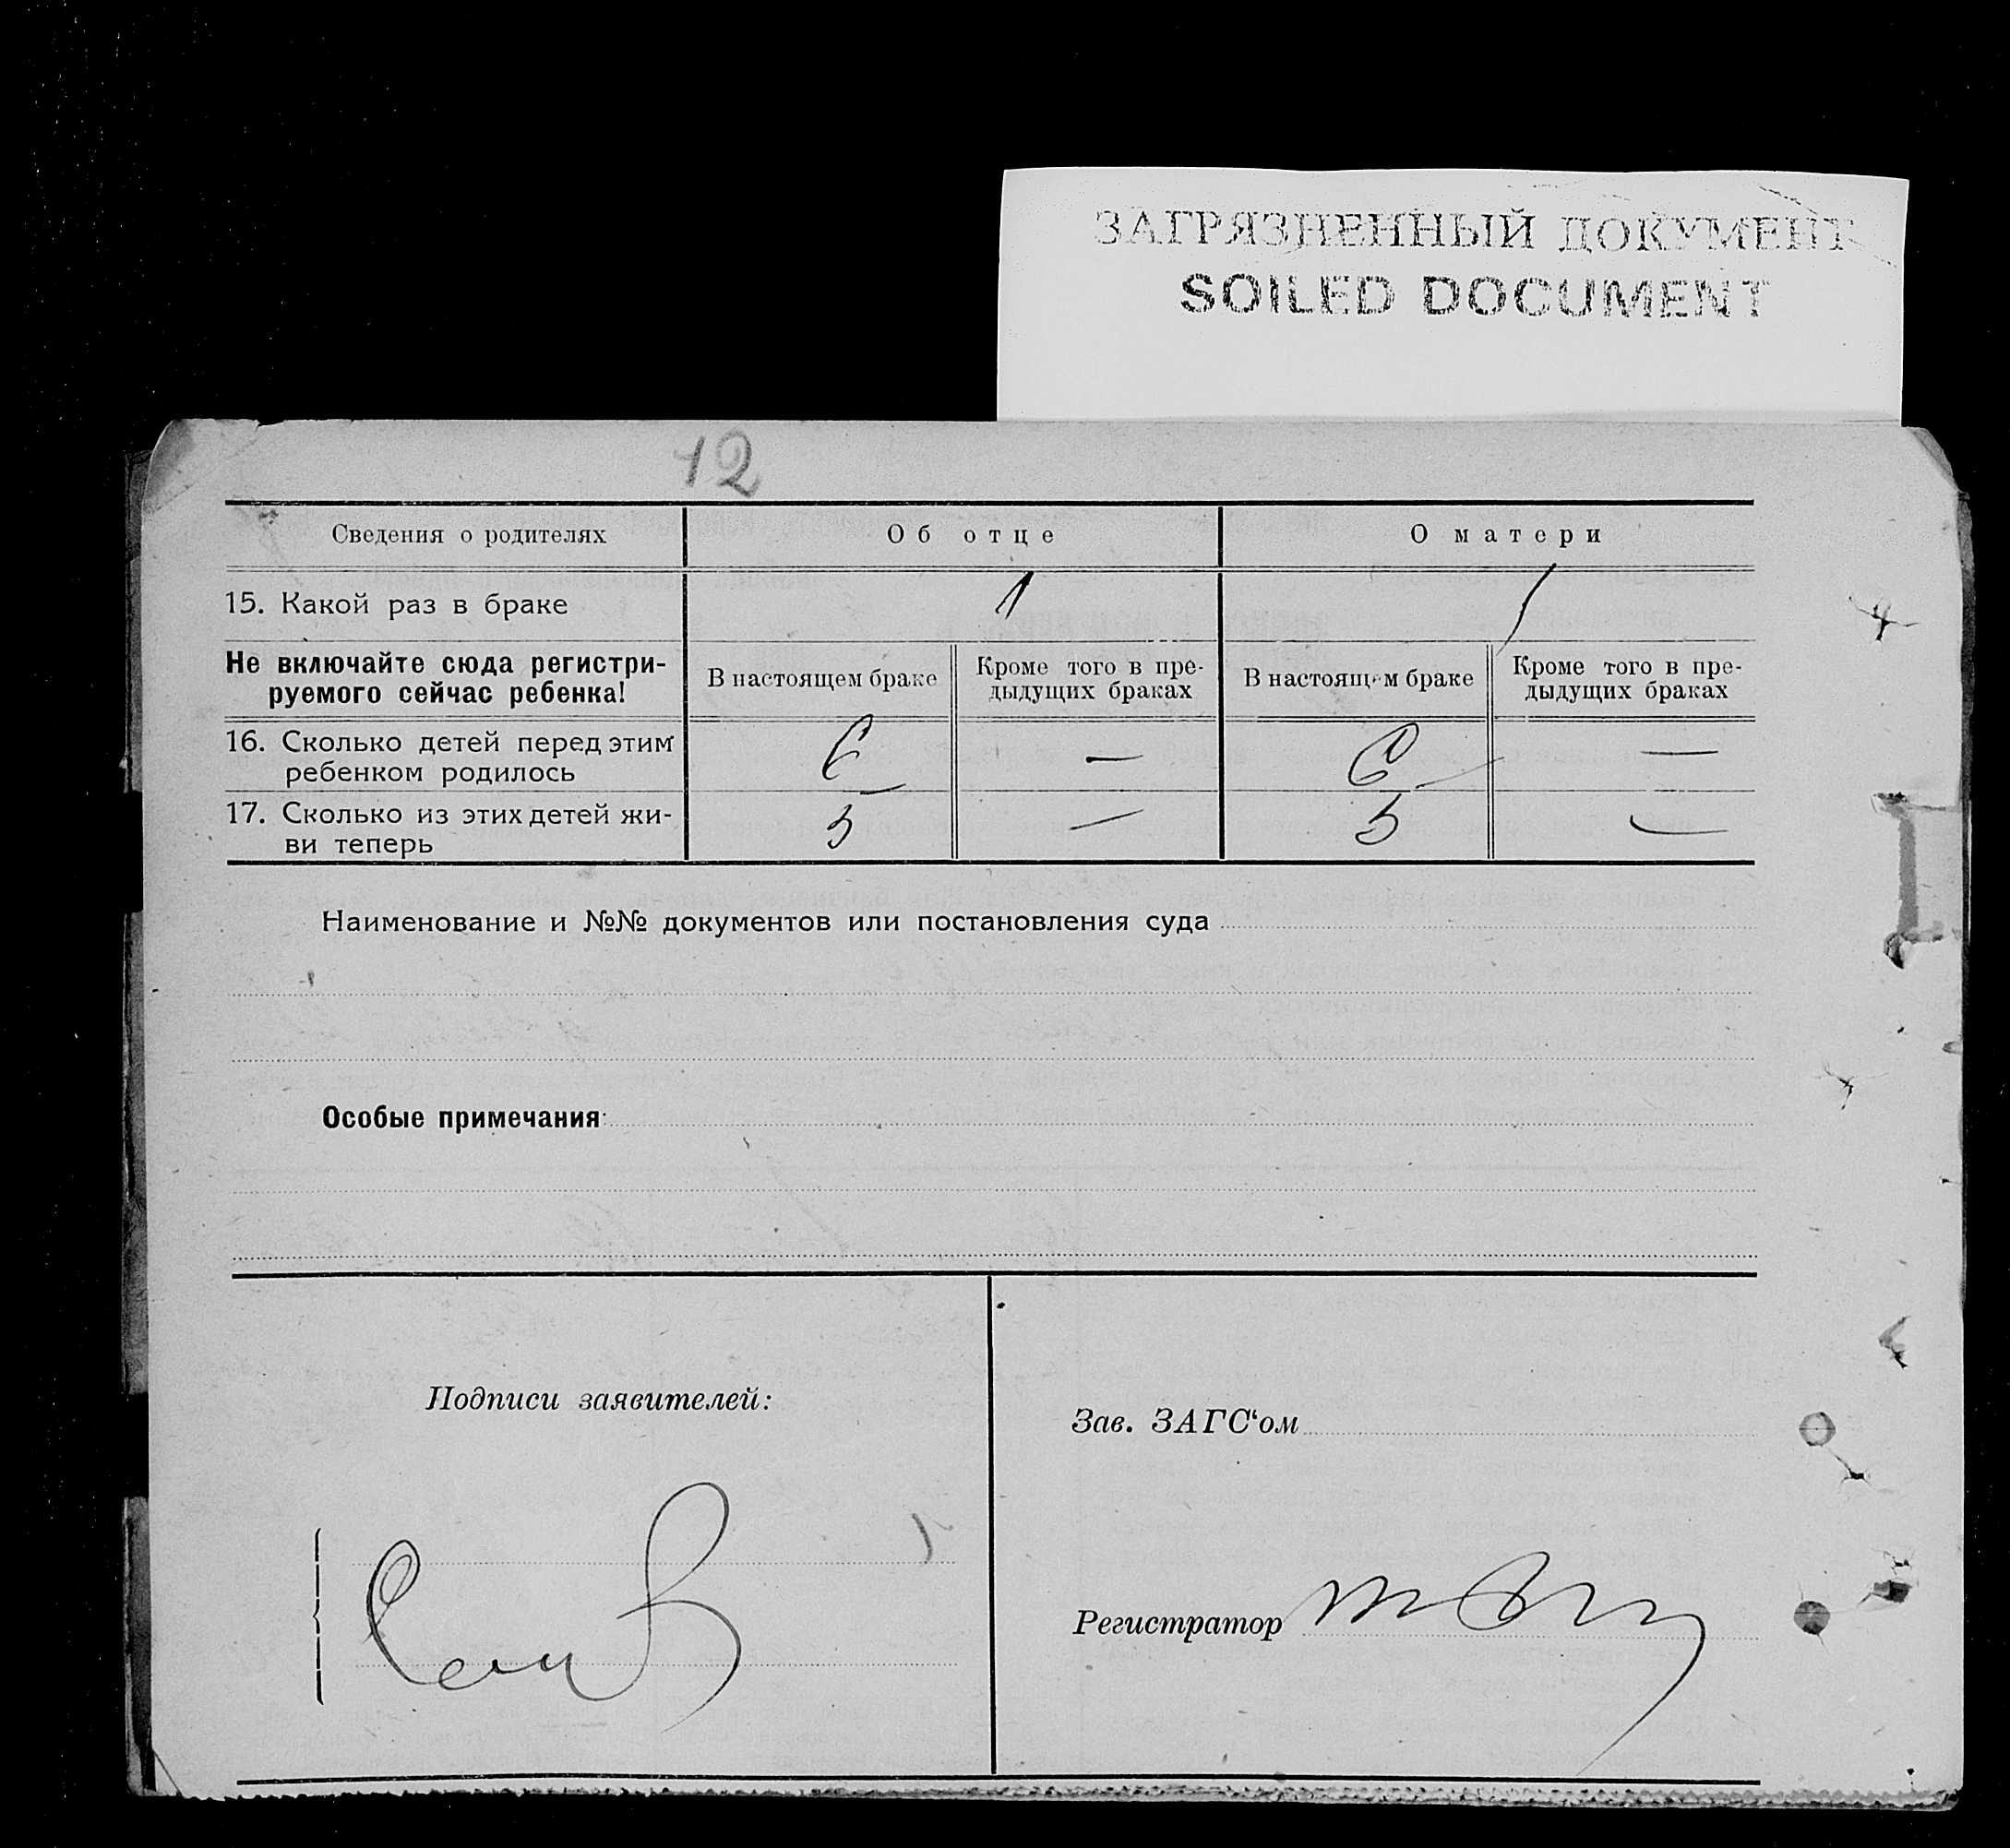 ЗАГРЯЗНЕННЫЙ ДОКУМЕНТ
SOILED DOCUMENT
12
Сведения о родителях Об отце О матери
15. Какой раз в браке 1 1
Не включайте сюда регистри-
руемого сейчас ребенка!
В настоящем браке
Кроме того в пре-
дыдущих браках
В настоящем браке
Кроме того в пре-
дыдущих браках
16. Сколько детей перед этим
ребенком родилось 6 — 6 —
17. Сколько из этих детей жи-
ви теперь 5 — 5 —
Наименование и №№ документов или постановления суда
Особые примечания:
Подписи заявителей:
Зав. ЗАГС‘ом
Регистратор